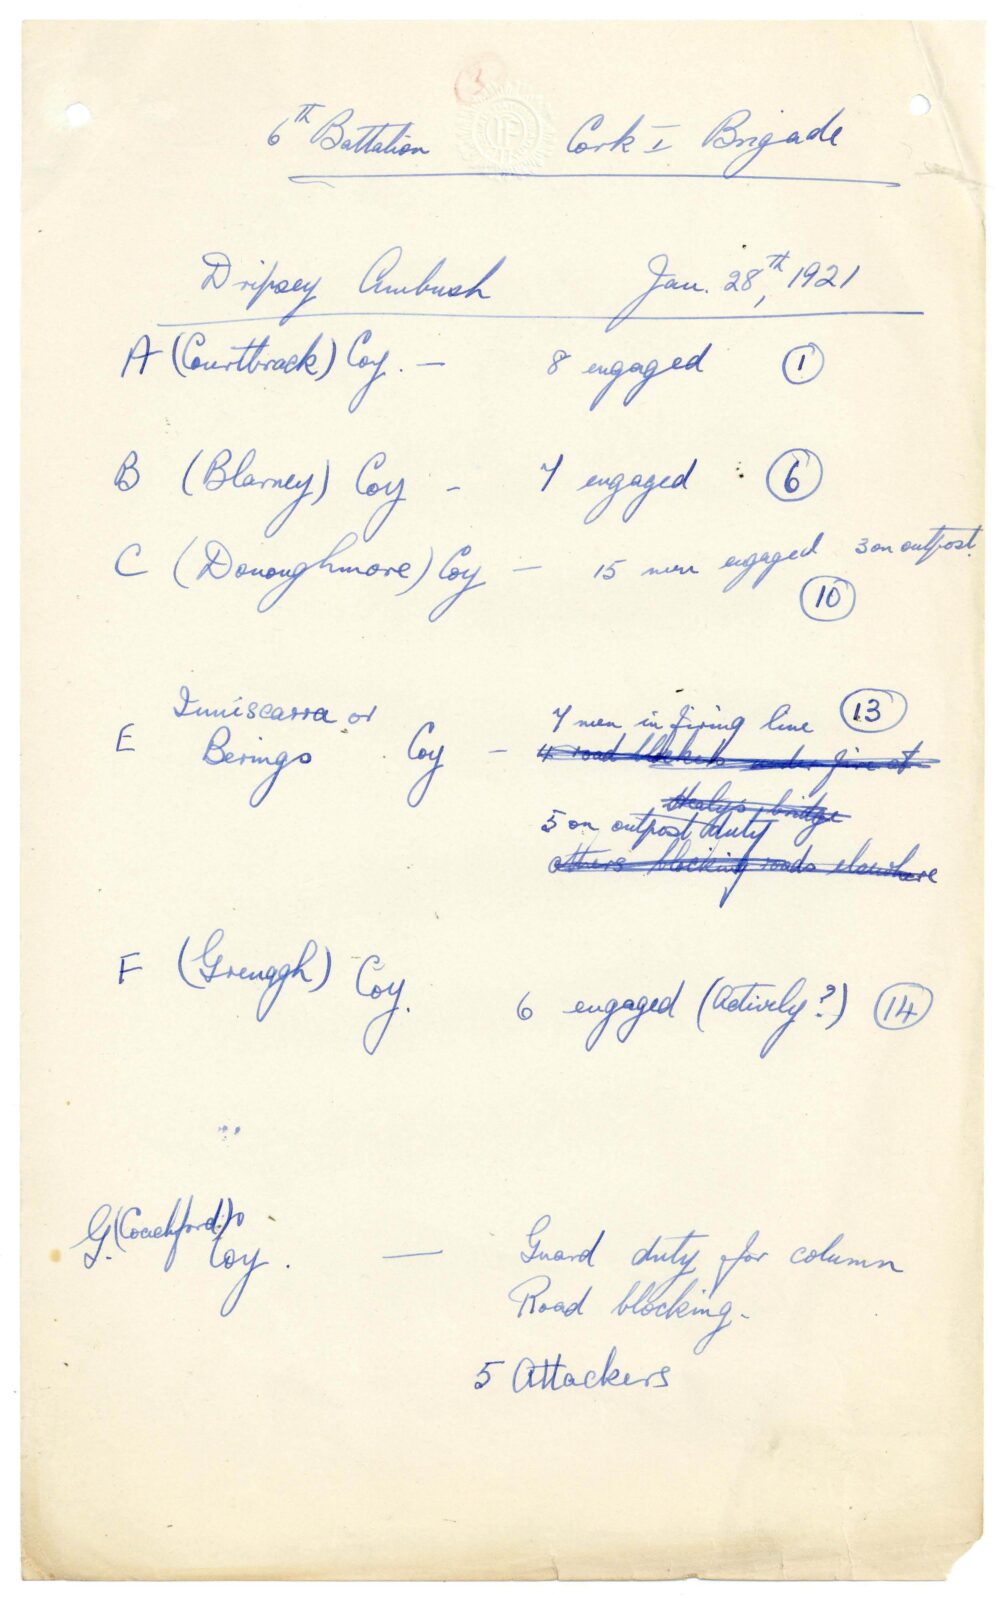 3
6th Battalion Cork I Brigade
Dripsey Ambush Jan. 28th, 1921
A (Courtbrack) Coy. — 8 engaged 1
B (Blarney) Coy - 7 engaged 6
C (Donoughmore) Coy — 15 men engaged 3 on outpost.
10
Inniscarra or
E Berings Coy — 7 men in firing line 13
4 road blockers under fire at
Healy's bridge
5 on outpost duty
others blocking roads elsewhere
F (Grenagh) Coy. 6 engaged (Actively?) 14
G. (Coachford)
Coy. — Guard duty for column
Road blocking.
5 Attackers